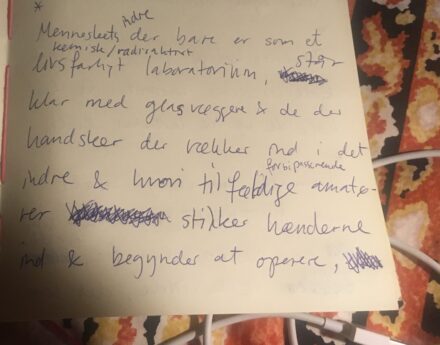 *
indre
Menneskets der bare er som et
kemisk/radioaktivt
livsfarligt laboratorium, står
klar med glasvæggene & de der
handsker der rækker ind i det
forbipasserende
indre & hvori tilfældige amatø-
rer stikker hænderne
ind & begynder at operere,